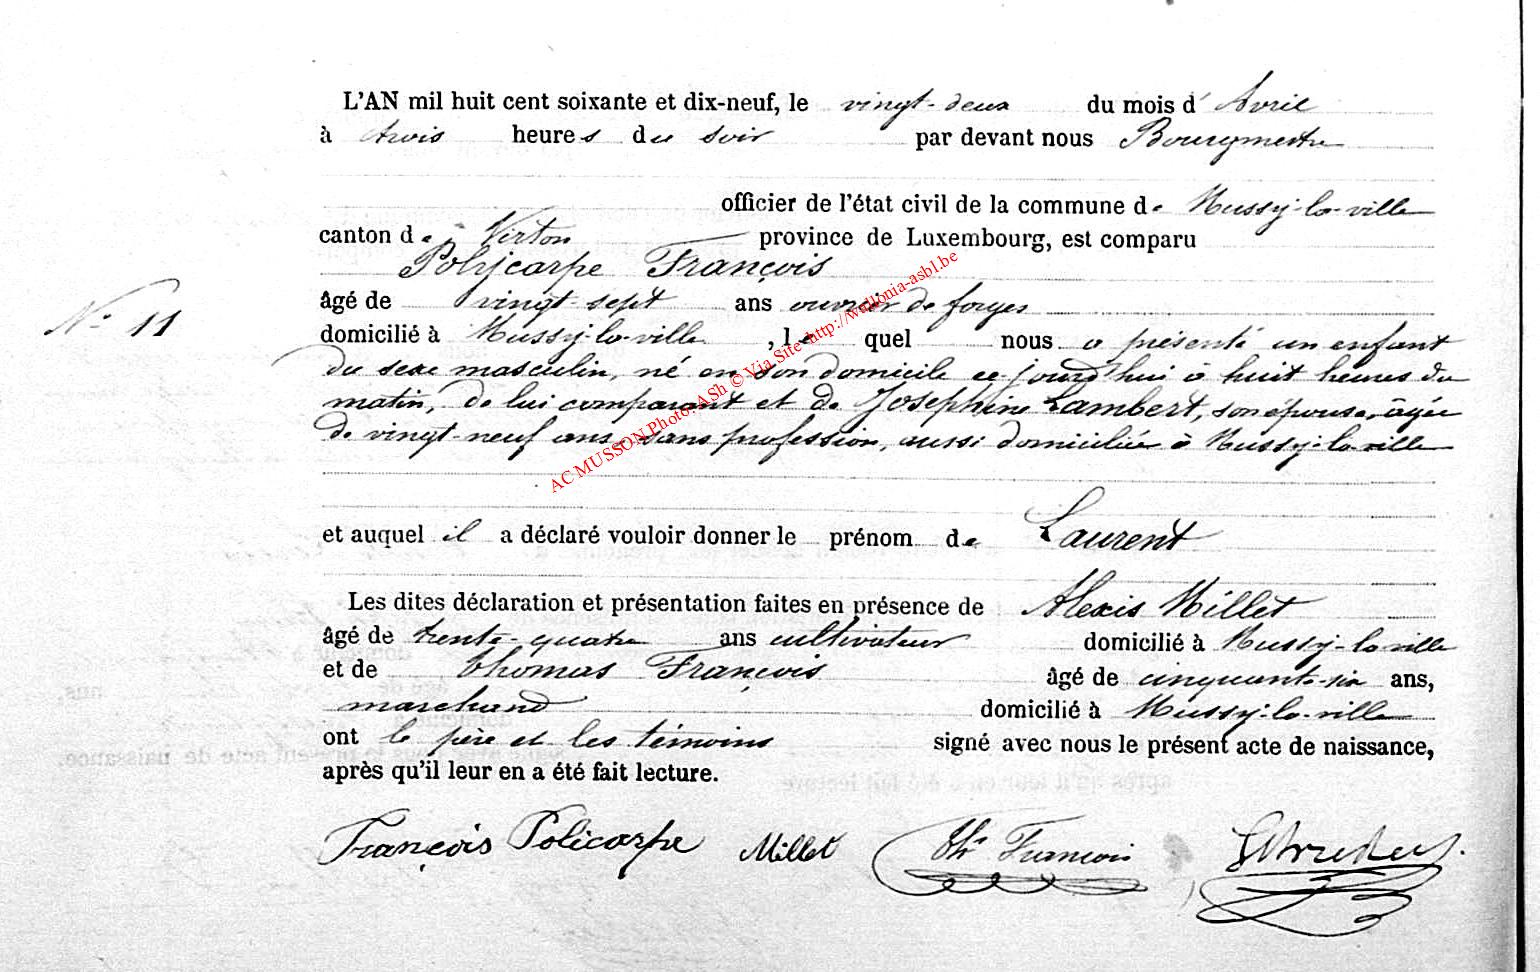 L'AN mil huit cent soixante et dix-neuf, le vingt-deux du mois d'Avril
à trois heures du soir par devant nous Bourgmestre
officier de l'état civil de la commune de Mussy-la-ville
canton de Virton province de Luxembourg, est comparu
Polycarpe François
N° 11
âgé de vingt-sept ans ouvrier de forges
domicilié à Mussy-la-ville, lequel nous a présenté un enfant
du sexe masculin, né en son domicile ce jourd'hui à huit heures du
matin, de lui comparant et de Josephine Lambert, son épouse, âgée
de vingt-neuf ans, sans profession, aussi domiciliée à Mussy-la-ville
AC MUSSON Photo-ASh © Via Site http://wallonia-asbl.be
et auquel il a déclaré vouloir donner le prénom de Laurent
Les dites déclaration et présentation faites en présence de Alexis Millet
âgé de trente-quatre ans cultivateur domicilié à Mussy-la-ville
et de Thomas François âgé de cinquante-six ans,
marchand domicilié à Mussy-la-ville
ont le père et les témoins signé avec nous le présent acte de naissance,
après qu'il leur en a été fait lecture.
François Policarpe Millet Th. François